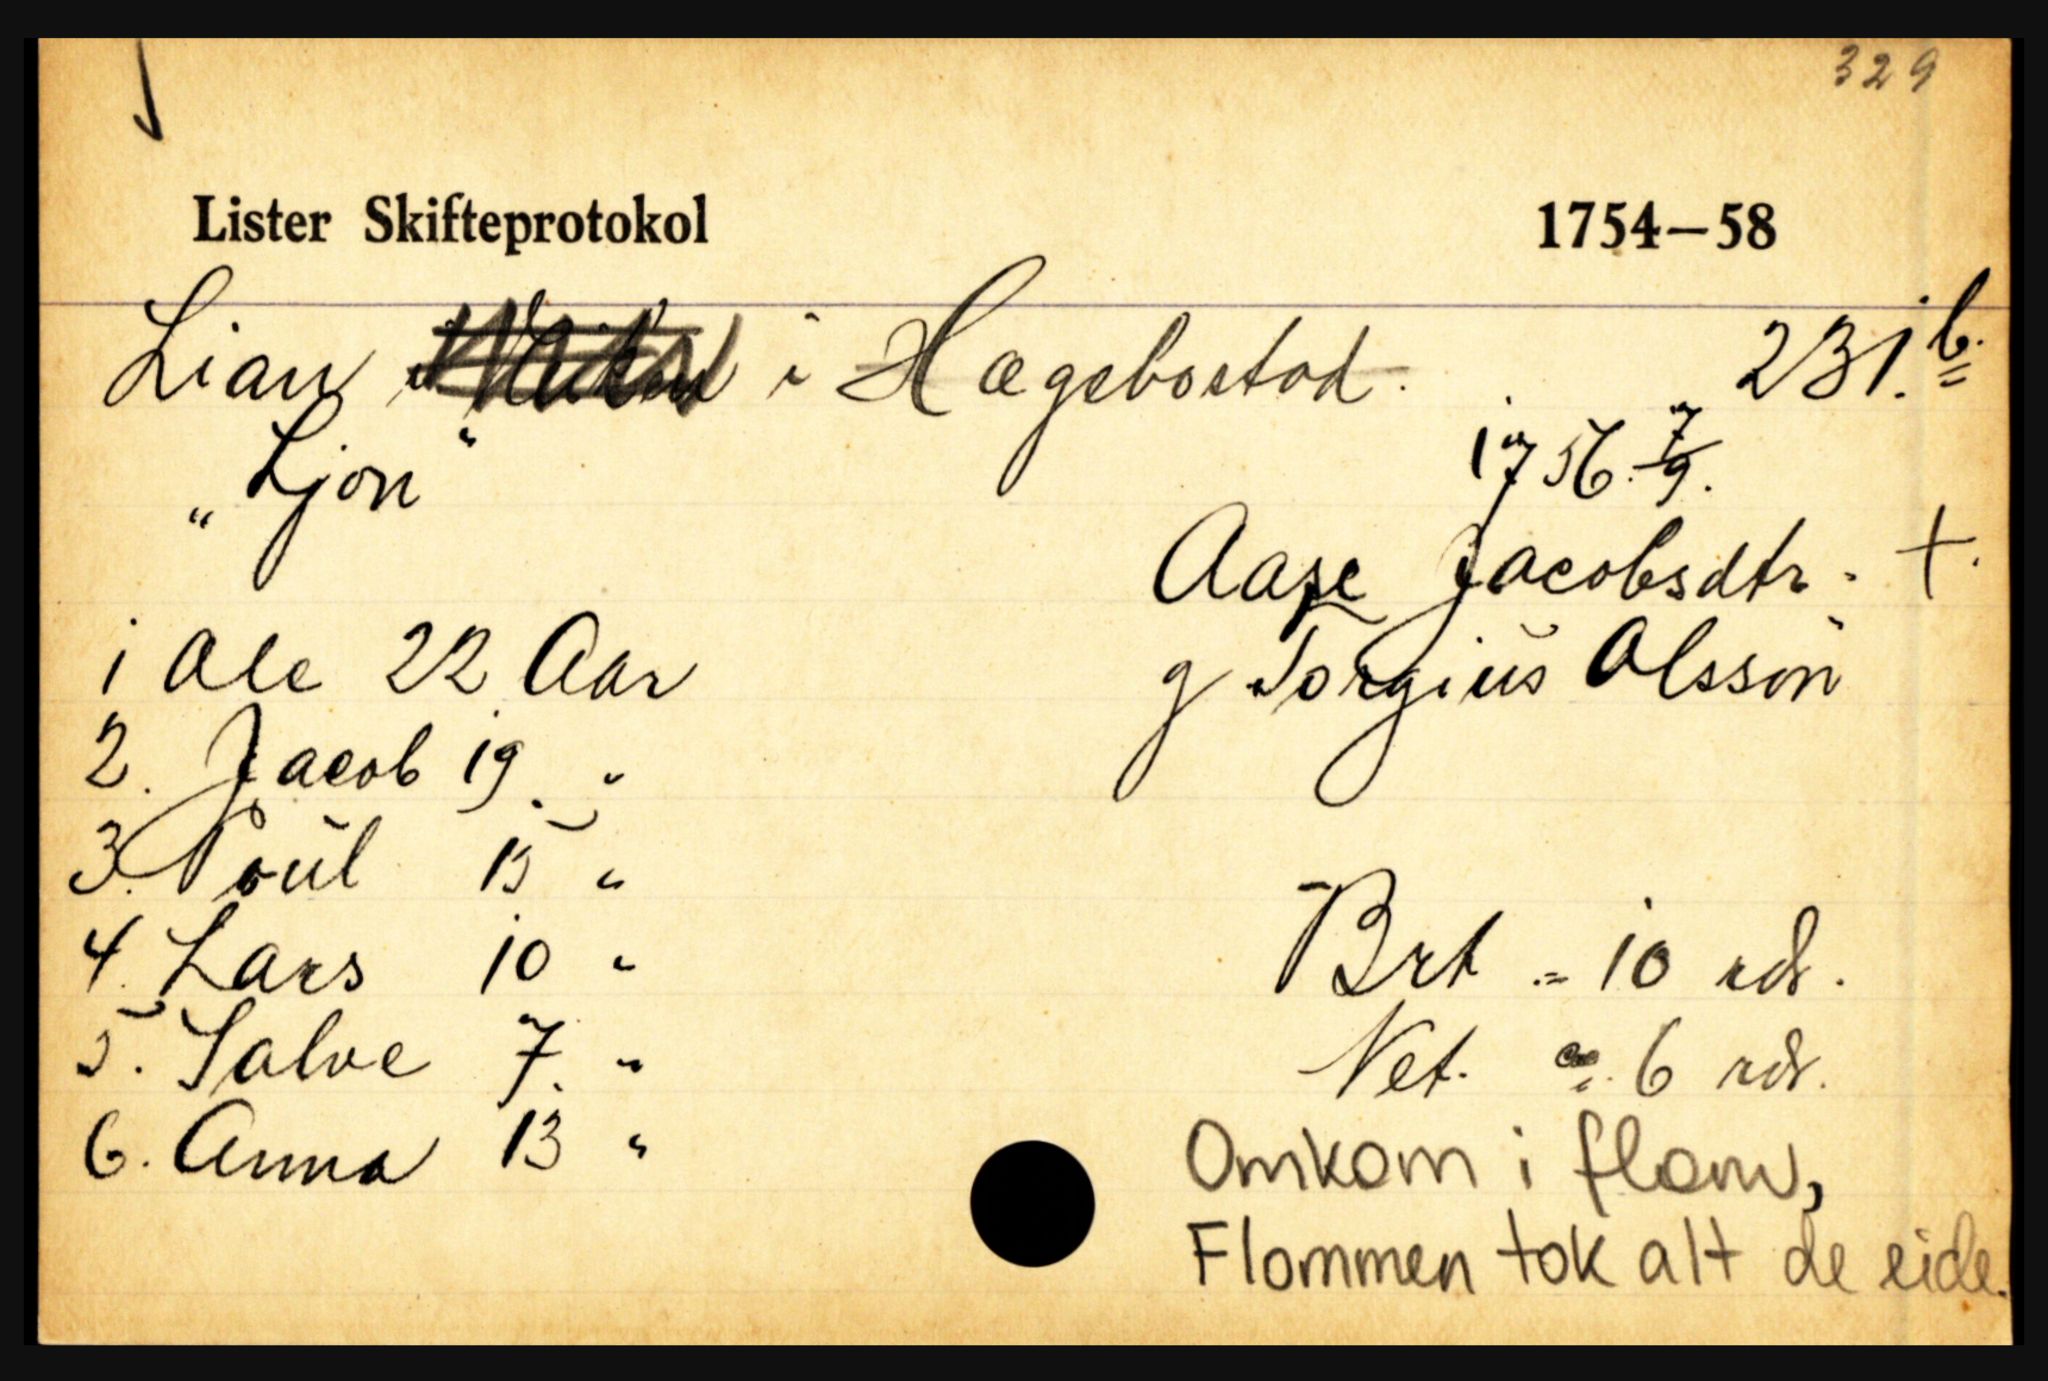 329
Lister Skifteprotokol 1754—58
Lian i Hægebostad. 231.b.
"Ljon" 1756 7/9.
Aase Jacobsdtr. +.
1 Ole 22 Aar g Torgius Olsson
2. Jacob 19. "
3. Poul 15 "
4. Lars 10 " Brt = 10 rdr.
5. Salve 7. " Net. = 6 rdr.
6. Anna 13 "
Omkom i flom,
Flommen tok alt de eide.